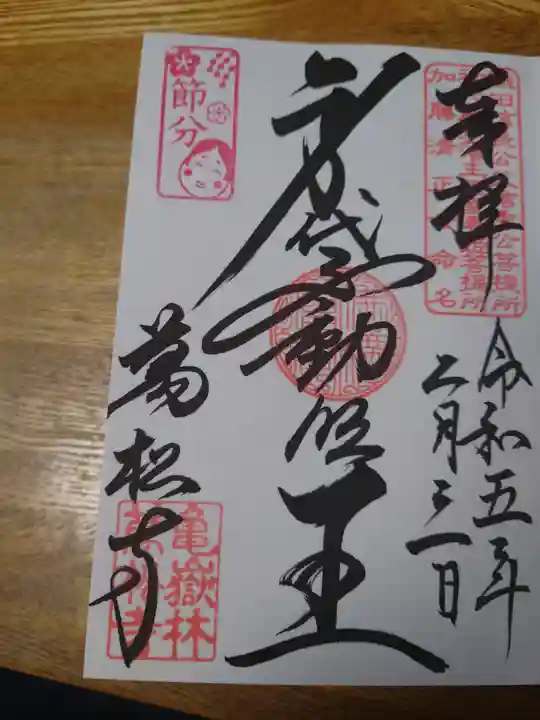 奉拝
令和五年
二月三日
身代不動明王
萬松寺
節分
加藤清正命名
亀嶽林
萬松寺